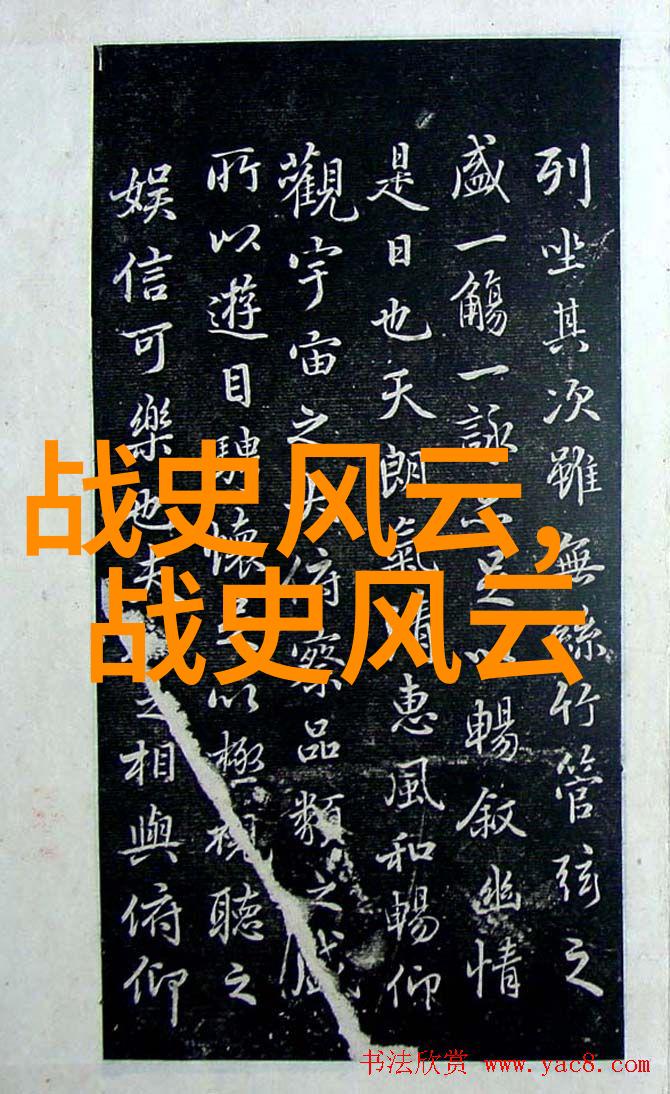 列坐其次雖無絲竹管弦之
盛一觴一詠亦足以暢叙幽情
是日也天朗氣清惠風和暢仰
觀宇宙之大俯察品類之盛
所以遊目騁懷足以極視聽之
娱信可樂也夫之相與俯仰
战史风云,
战史风云
书法欣赏 www.yac8.com